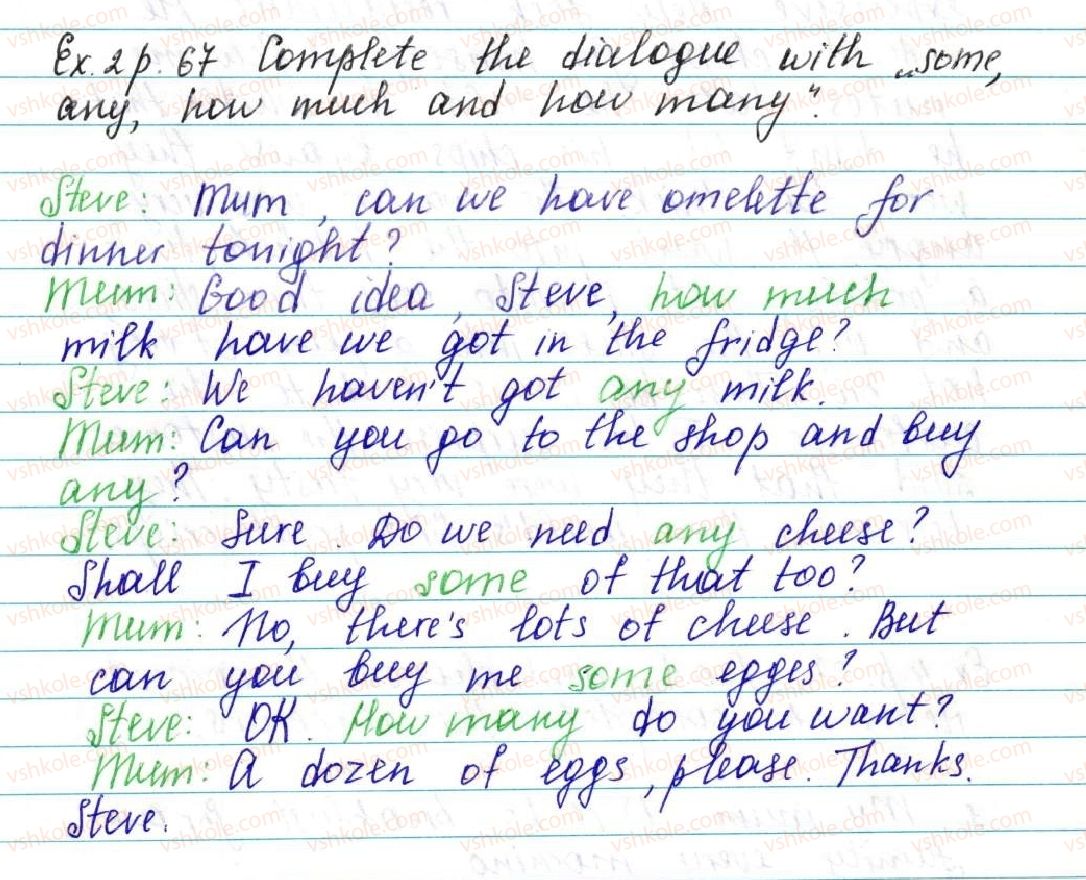 Ex. 2 p. 67 Complete the dialogue with „some,
any, how much and how many“.
Steve: Mum, can we have omelette for
dinner tonight?
Mum: Good idea, Steve, how much
milk have we got in the fridge?
Steve: We haven't got any milk.
Mum: Can you go to the shop and buy
any?
Steve: Sure. Do we need any cheese?
Shall I buy some of that too?
Mum: No, there's lots of cheese. But
can you buy me some egges?
Steve: OK. How many do you want?
Mum: A dozen of eggs, please. Thanks.
Steve.
vshkole.com